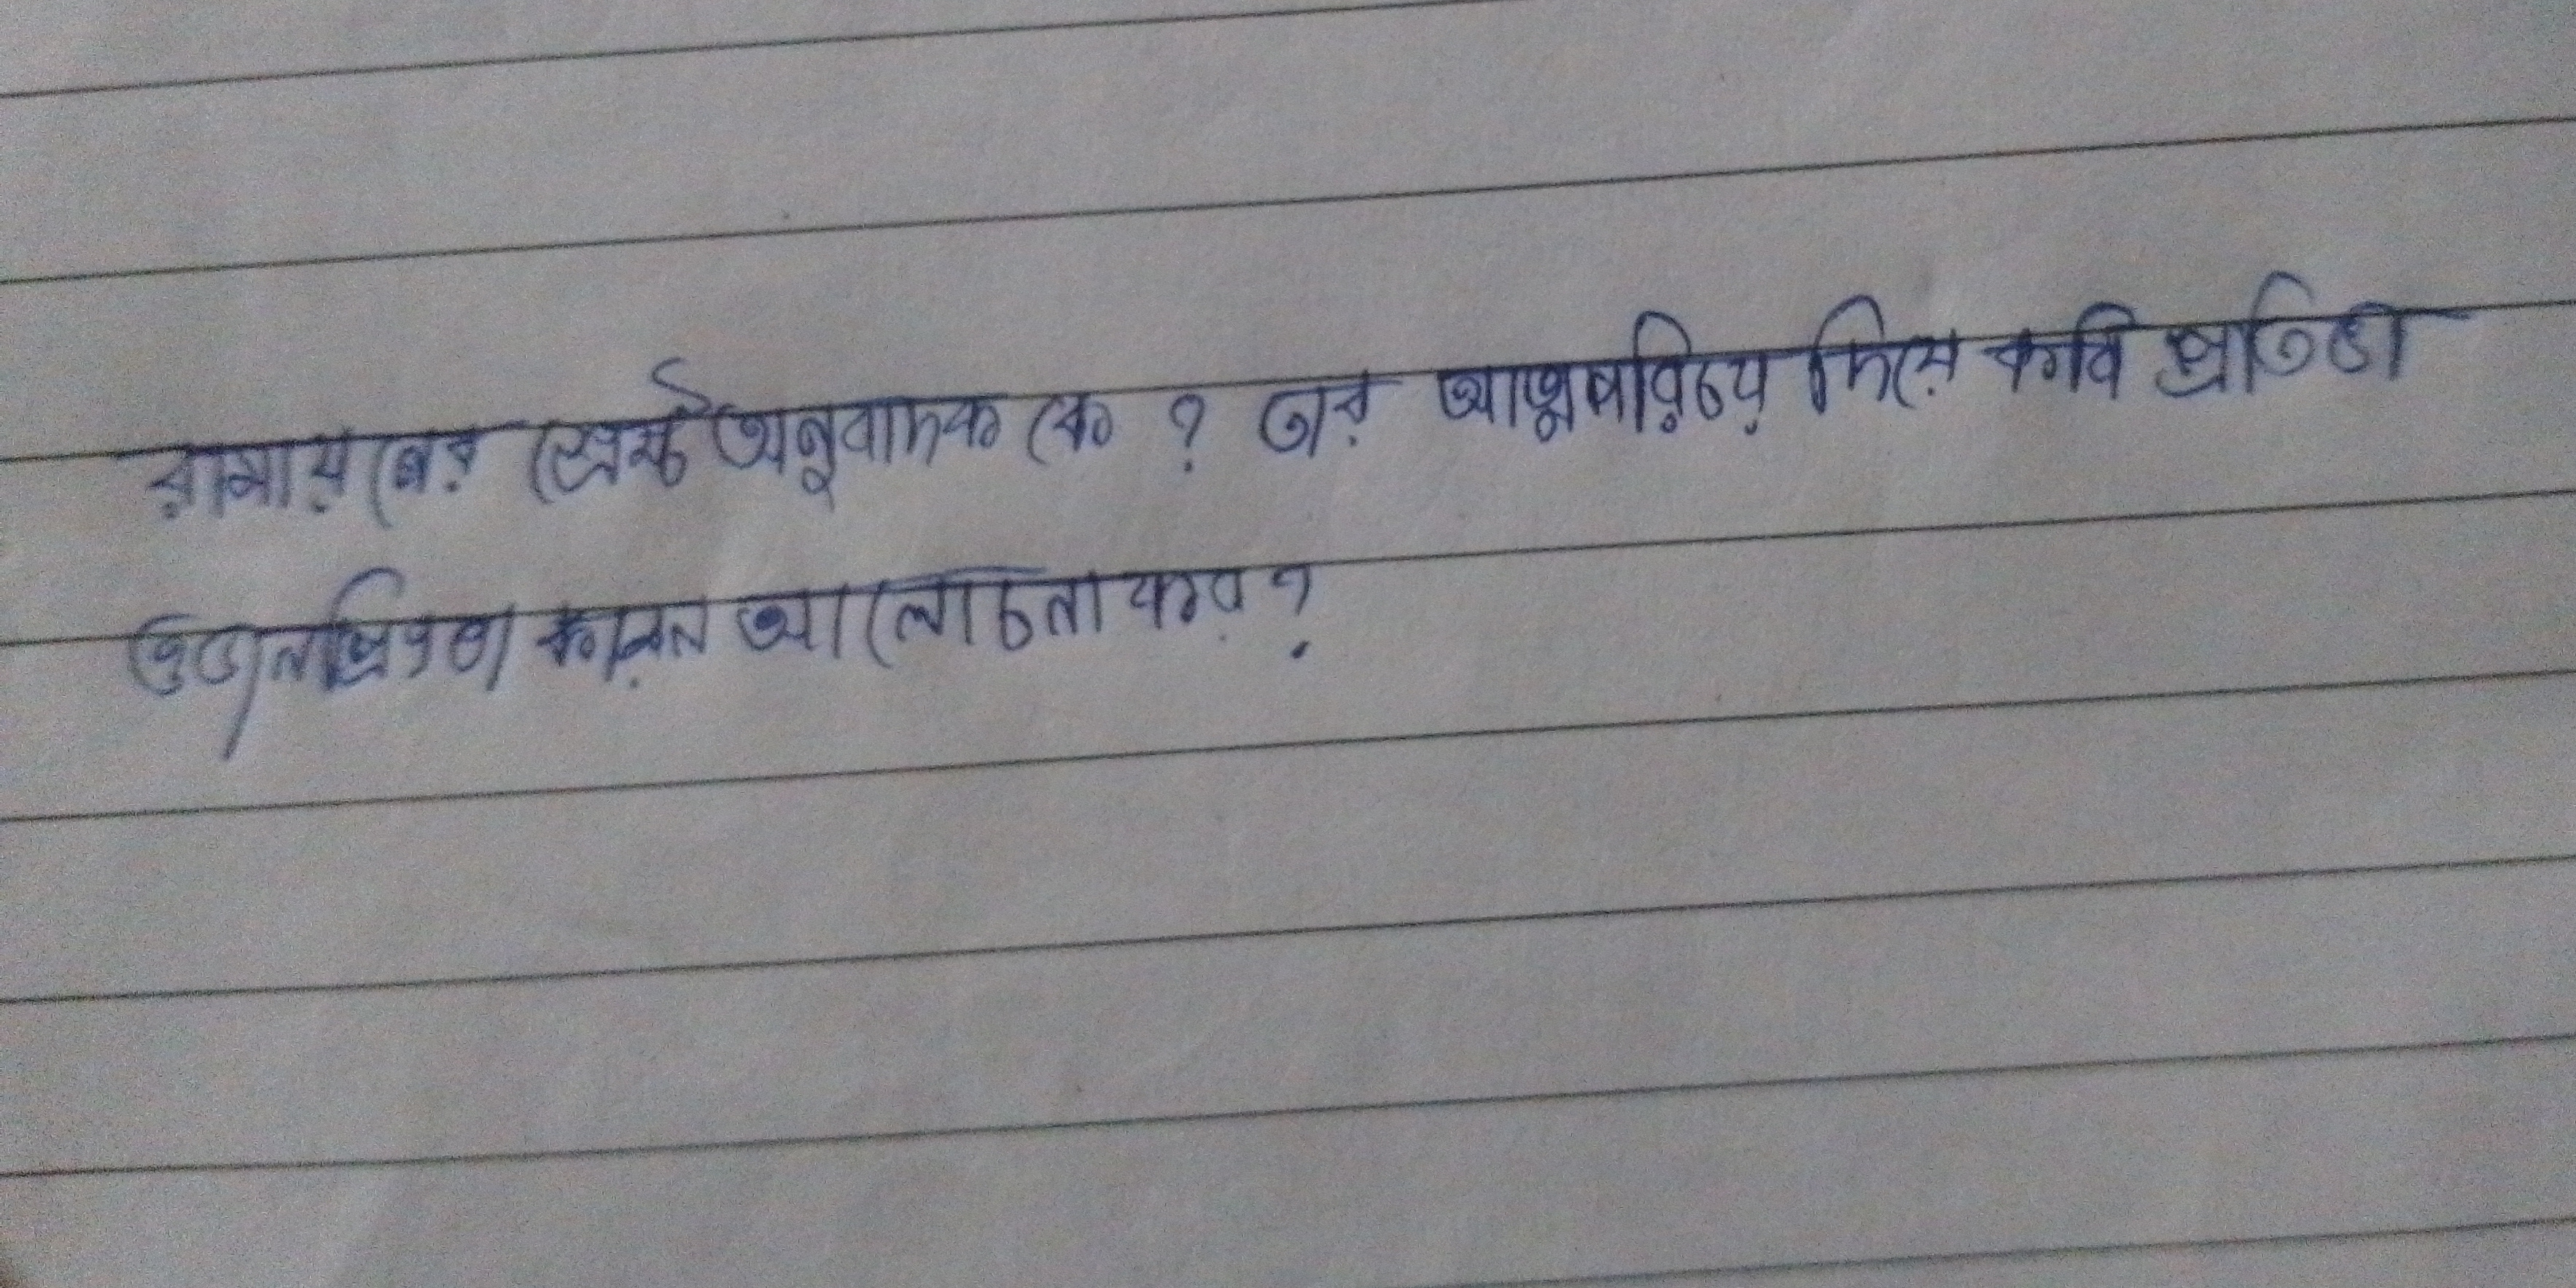 রামায়নের শ্রেষ্ঠ অনুবাদক কে ? তার আত্মপরিচয় দিয়ে কবি প্রতিভা
ও জনপ্রিয়তা কারন আলোচনা কর ?